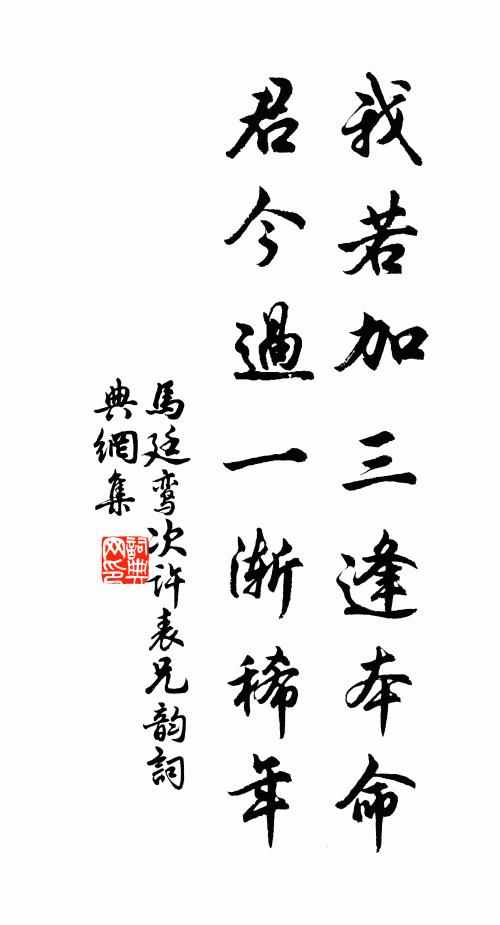 我若加三逢本命
君今過一漸稀年
馬廷鸾次许表兄韵詞
典網集
詞典
网印